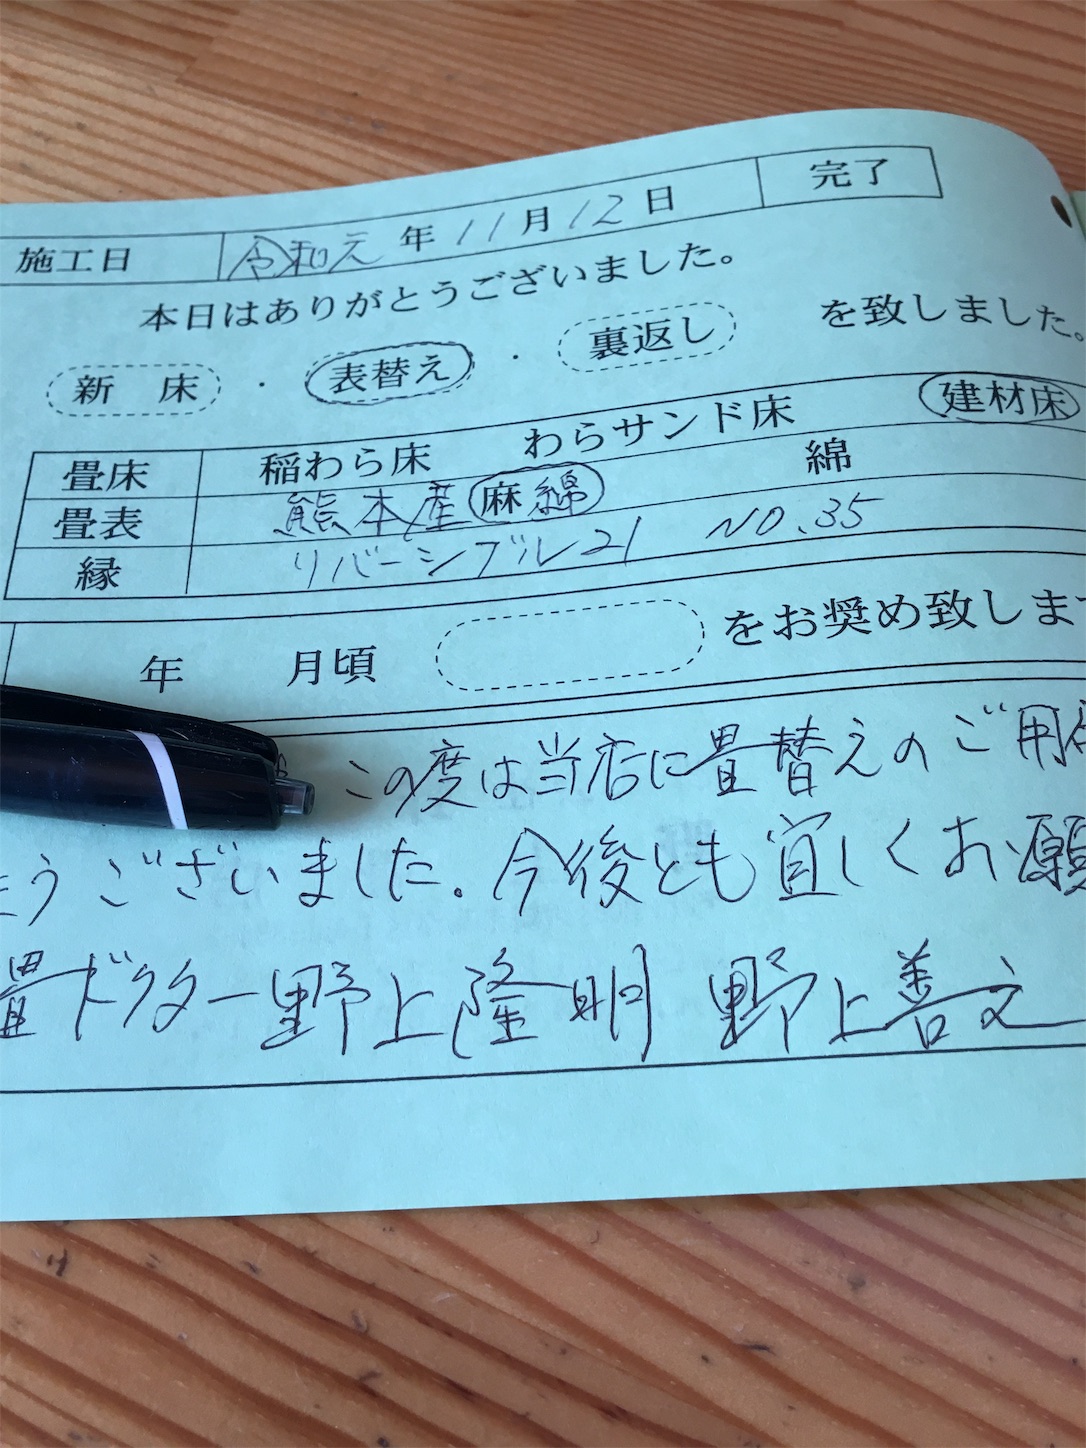 施工日 令和元年11月12日 完了
本日はありがとうございました。
新床・表替え・裏返し を致しました。
畳床 稲わら床 わらサンド床 建材床
畳表 熊本産 麻綿 綿
縁 リバーシブル21 NO.35
年 月頃 をお奨め致しま
この度は当店に畳替えのご用
うございました。今後とも宜しくお願
畳ドクター野上隆明 野上善文